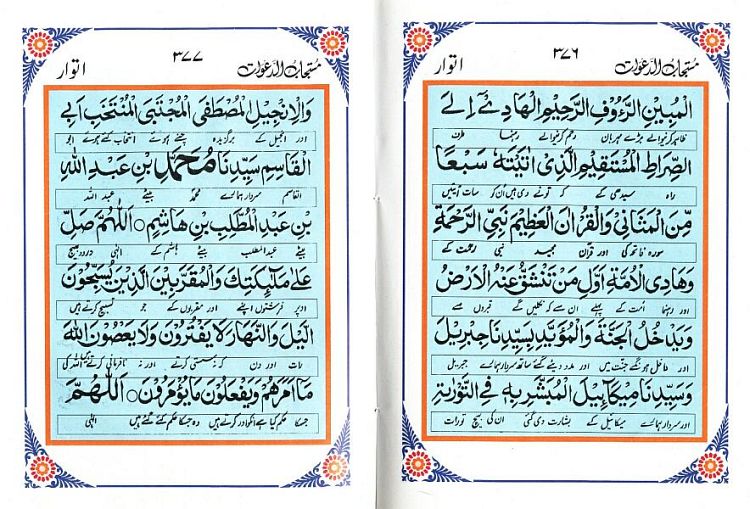 اتوار ٣٧٦ مستجاب الدعوات
الْمُبِيْنِ الرَّءُوْفِ الرَّحِيْمِ الْهَادِيْٓ اِلٰى
ظاہر کرنیوالے بڑے مہربان رحم کرنیوالے رہنما طرف
الصِّرَاطِ الْمُسْتَقِيْمِ الَّذِيْ اٰتَيْتَهٗ سَبْعًا
راہ سیدھی کے کہ تو نے دی ہیں ان کو سات آیتیں
مِّنَ الْمَثَانِيْ وَالْقُرْاٰنَ الْعَظِيْمَ نَبِيِّ الرَّحْمَةِ
سورہ فاتحہ کی اور قرآن مجید نبی رحمت کے
وَهَادِي الْاُمَّةِ اَوَّلِ مَنْ تَنْشَقُّ عَنْهُ الْاَرْضُ
اور رہنما امت کے پہلے ان سے کہ نکلیں گے قبروں سے
وَيَدْخُلُ الْجَنَّةَ وَالْمُؤَيَّدِ بِسَيِّدِنَا جِبْرِيْلَ
اور داخل ہونگے جنت میں اور مدد دیئے گئے ساتھ سردار ہمارے جبریل
وَسَيِّدِنَا مِيْكَآئِيْلَ الْمُبَشَّرِ بِهٖ فِي التَّوْرٰىةِ
اور سردار ہمارے میکائیل کے بشارت دی گئی ان کی بیچ تورات
اتوار ٣٧٧ مستجاب الدعوات
وَالْاِنْجِيْلِ الْمُصْطَفَى الْمُجْتَبَى الْمُنْتَخَبِ اَبِي
اور انجیل کے برگزیدہ چنے ہوئے انتخاب کئے ہوئے ابو
الْقَاسِمِ سَيِّدِنَا مُحَمَّدِ بْنِ عَبْدِ اللّٰهِ
القاسم سردار ہمارے محمد بیٹے عبد اللہ
بْنِ عَبْدِ الْمُطَّلِبِ بْنِ هَاشِمٍ ○ اَللّٰهُمَّ صَلِّ
بیٹے عبدالمطلب بیٹے ہاشم کے الٰہی درود بھیج
عَلٰى مَلٰٓئِكَتِكَ وَالْمُقَرَّبِيْنَ الَّذِيْنَ يُسَبِّحُوْنَ
اوپر فرشتوں اپنے اور مقربوں کے جو تسبیح کرتے ہیں
الَّيْلَ وَالنَّهَارَ لَا يَفْتُرُوْنَ وَلَا يَعْصُوْنَ اللّٰهَ
رات اور دن کہ نہ سستی کرتے اور نہ نافرمانی کرتے اللہ کی
مَآ اَمَرَهُمْ وَيَفْعَلُوْنَ مَا يُؤْمَرُوْنَ ○ اَللّٰهُمَّ
جسکا حکم کیا ہے انکو اور کرتے ہیں وہ جسکا حکم کئے گئے ہیں الٰہی